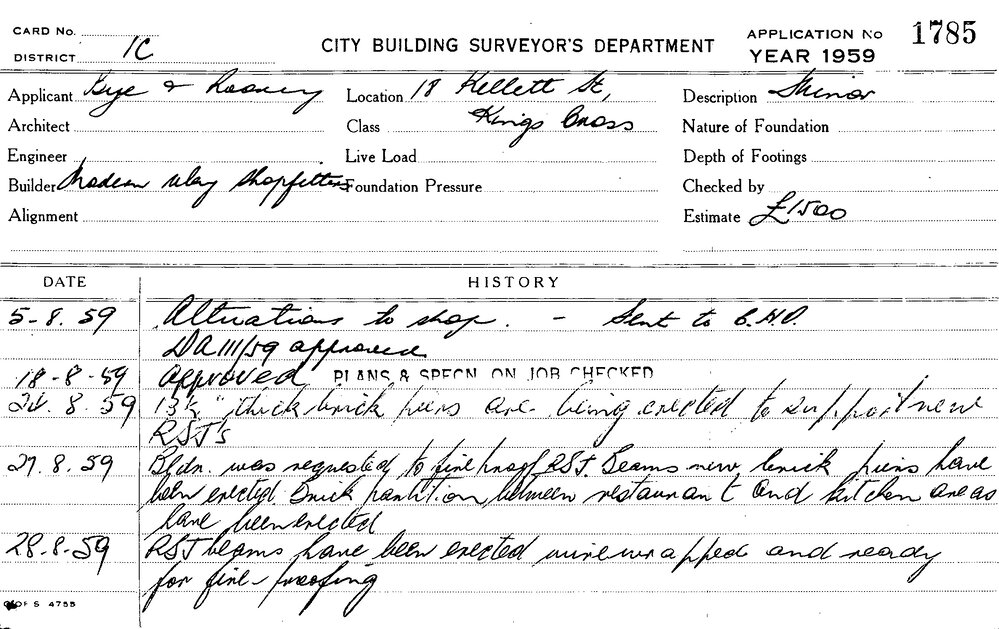 CARD No.
DISTRICT 1C
CITY BUILDING SURVEYOR'S DEPARTMENT
APPLICATION No 1785
YEAR 1959
Applicant Bye & Rooney
Location 18 Kellett St,
Kings Cross
Description Minor
Architect
Class
Nature of Foundation
Engineer
Live Load
Depth of Footings
Builder Modern Way Shopfitters
Foundation Pressure
Checked by
Alignment
Estimate £1500
DATE HISTORY
5-8.59 Alterations to shop. - Sent to C.H.O.
DA 111/59 approved
18-8-59 Approved PLANS & SPECN. ON JOB CHECKED
8.59 13½" thick brick piers are being erected to support new
RSJ's
27.8.59 Bldr. was requested to fire proof RSJ. Beams new brick piers have
been erected. Brick partition between restaurant and kitchen areas
have been erected
28-8-59 RSJ beams have been erected wire wrapped and ready
for fire-proofing
OF S 4755